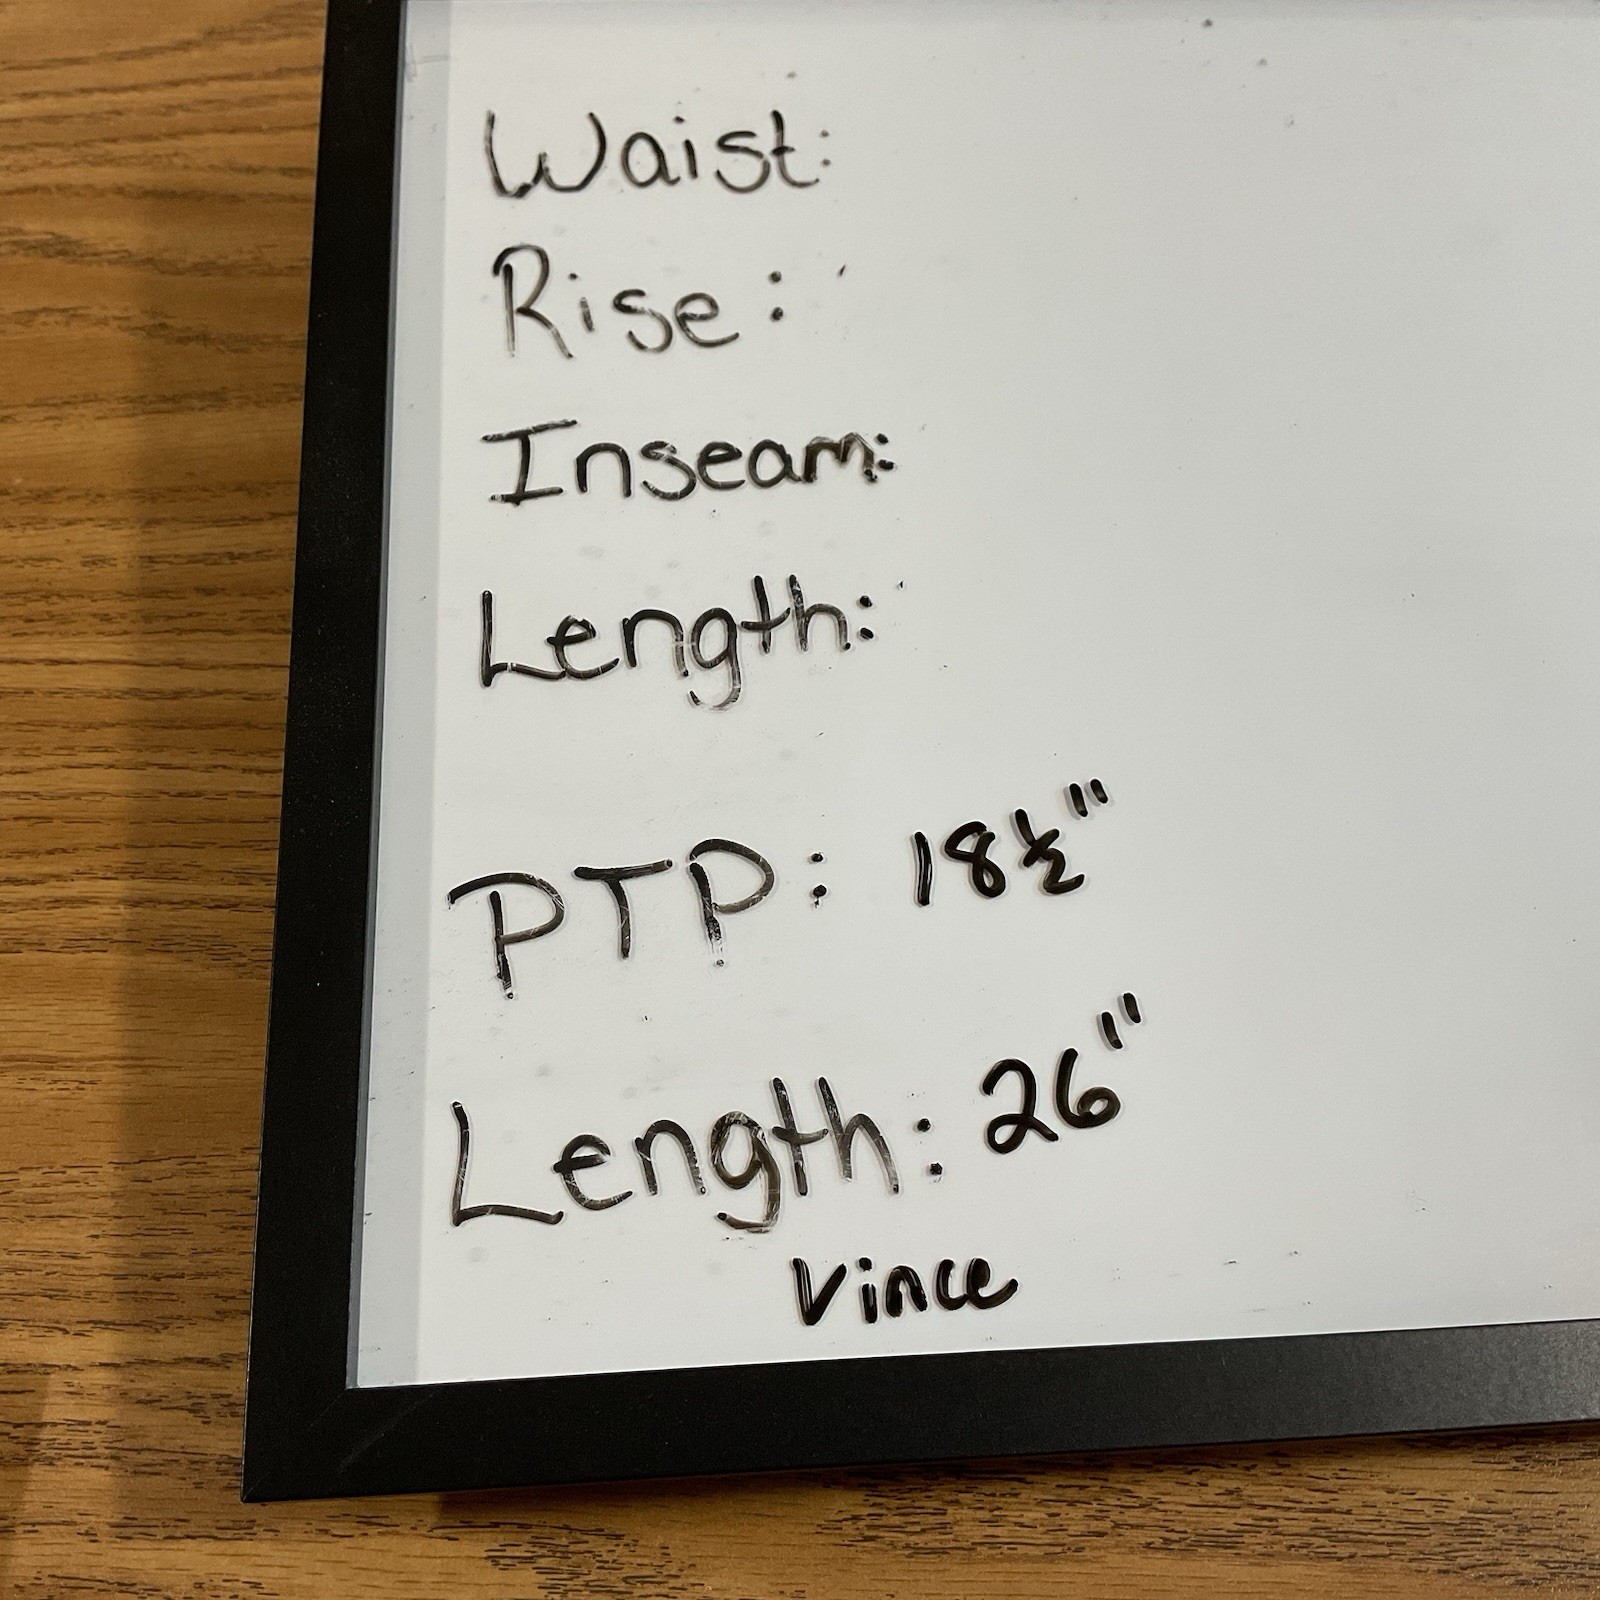 Waist:
Rise:
Inseam:
Length:
PTP: 18½"
Length: 26"
Vince